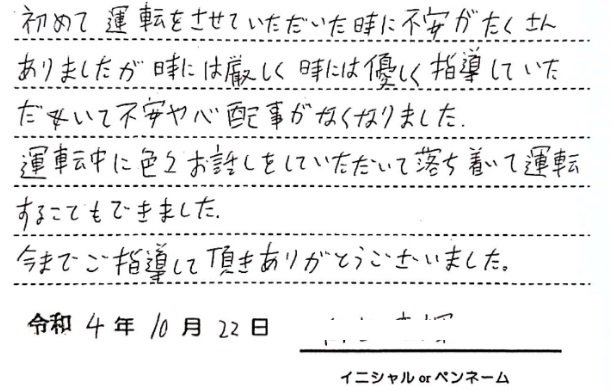 初めて運転をさせていただいた時に不安がたくさん
ありましたが時には厳しく時には優しく指導していた
だいて不安や心配事がなくなりました.
運転中に色々お話しをしていただいて落ち着いて運転
することもできました.
今までご指導して頂きありがとうございました。
令和4年10月22日
イニシャルorペンネーム